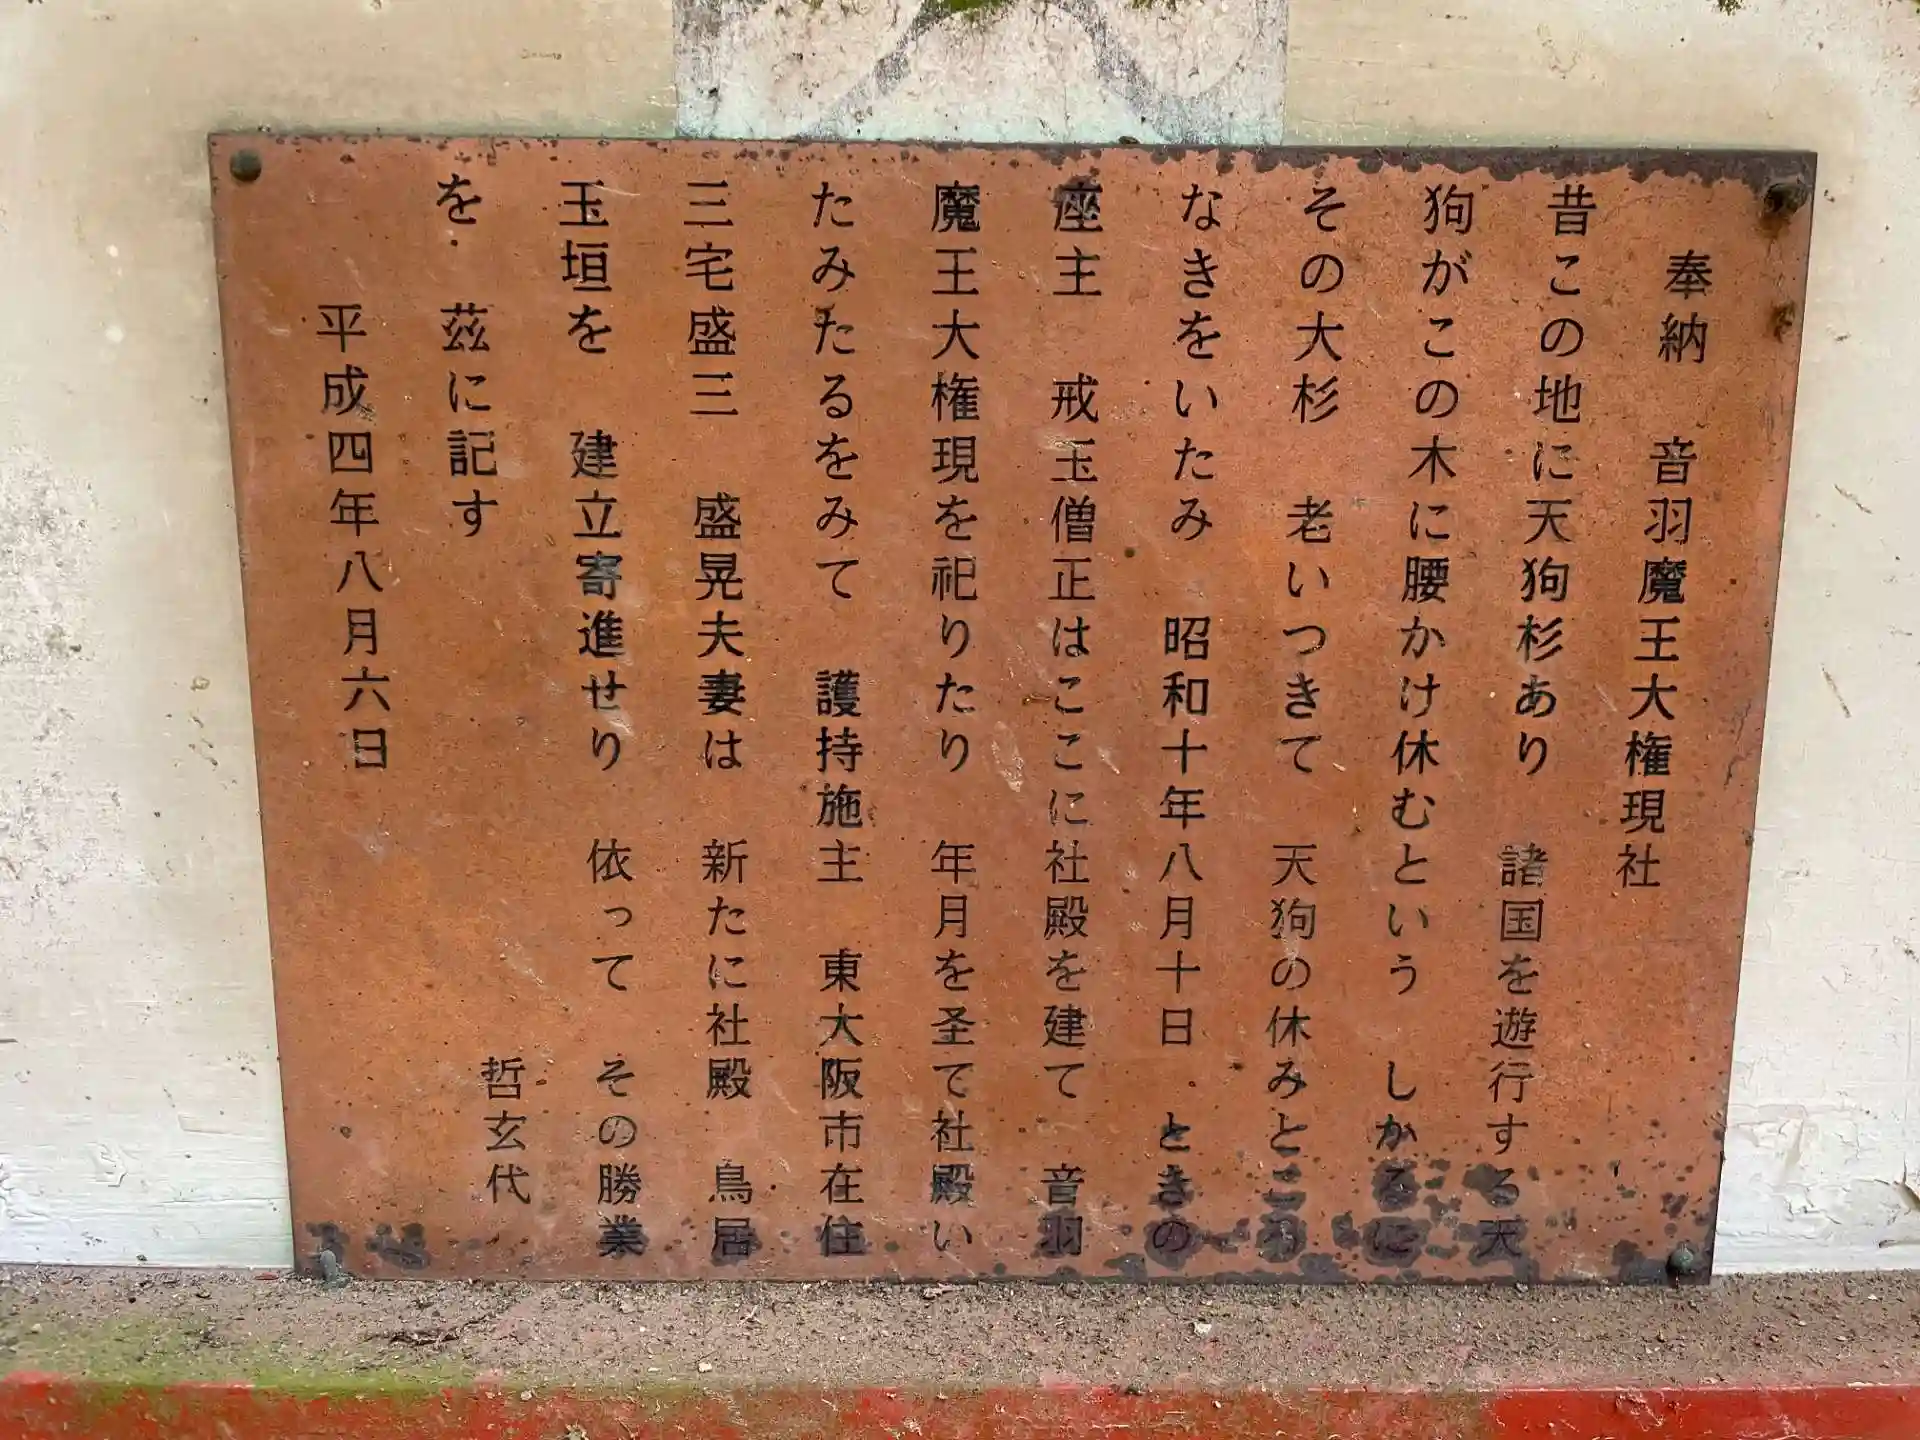 奉納　音羽魔王大権現社
昔この地に天狗杉あり　諸国を遊行する天
狗がこの木に腰かけ休むという　しかるに
その大杉　老いつきて　天狗の休みところ
なきをいたみ　昭和十年八月十日　ときの
座主　戒玉僧正はここに社殿を建て　音羽
魔王大権現を祀りたり　年月を圣て社殿い
たみたるをみて　護持施主　東大阪市在住
三宅盛三　盛晃夫妻は　新たに社殿　鳥居
玉垣を　建立寄進せり　依って　その勝業
を　茲に記す　哲玄代
平成四年八月六日